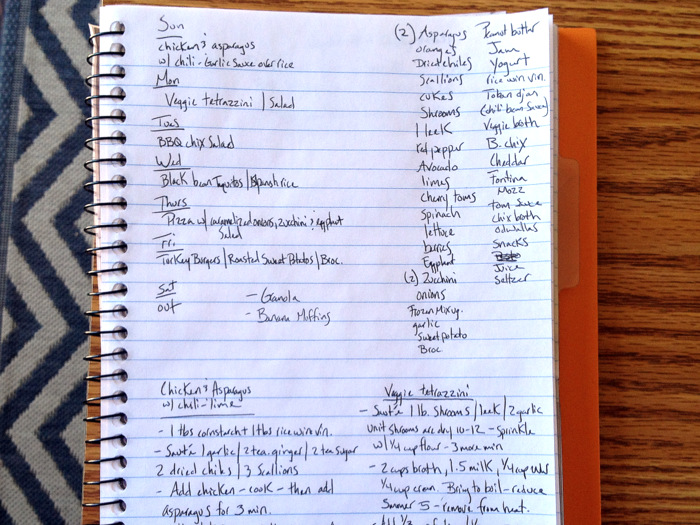 Sun
chicken & asparagus
w/ chili-Garlic Sauce over rice
Mon
Veggie tetrazzini | Salad
Tues
BBQ chix Salad
Wed
Black bean Taquitos | Spanish rice
Thurs
Pizza w/ caramelized onions, Zucchini & eggplant
Salad
Fri
Turkey Burgers | Roasted Sweet Potatos | Broc.
Sat
out
- Granola
- Banana Muffins
(2) Asparagus
oranges
Dried chiles
Scallions
cukes
Shrooms
1 leek
red pepper
Avocado
limes
cherry toms
Spinach
lettuce
berries
Eggplant
(2) Zucchini
onions
Frozen Mix vg.
garlic
Sweet potato
Broc
Peanut butter
Jam
Yogurt
rice win vin.
Toban djan
(chili bean Sauce)
Veggie broth
B. chix
Cheddar
Fontina
Mozz
tom Sauce
chix broth
odwallas
Snacks
Juice
Seltzer
Chicken & Asparagus
w/ chili-lime
- 1 tbs cornstarch 1 tbs rice win vin.
- Sauté 1 garlic | 2 tea. ginger | 2 tea sugar
2 dried chiles | 3 Scallions
- Add chicken - cook - then add
asparagus for 3 min.
Veggie tetrazzini
- Sauté 1 lb. Shrooms | leek | 2 garlic
until Shrooms are dry 10-12. - Sprinkle
w/ 1/4 cup flour - 3 more min
- 2 cups broth, 1.5 milk, 1/4 cup
1/4 cup cream. Bring to boil - reduce
Simmer 5 - remove from heat.